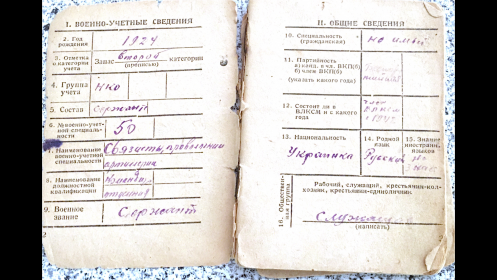 I. ВОЕННО-УЧЕТНЫЕ СВЕДЕНИЯ
2. Год рождения 1924
3. Отметка о категории учёта Запас второй категории
(прописью)
4. Группа учета НКО
5. Состав сержант
6. №военно-учетной специальности 50
7. Наименование военно-учетной специальности Связисты, проволочной
артиллерии
8. Наименование должностной квалификации
9. Военное звание Сержант
2
II. ОБЩИЕ СВЕДЕНИЯ
10. Специальность (гражданская) не имеет
11. Партийность
в ВКП(б)
(указать какого года)
12. Состоит ли в ВЛКСМ и с какого года член
ВЛКСМ
13. Национальность Украинка
14. Родной язык Русский
15. Знание иностран. языков не
знает
16. Обществен-ная группа
Рабочий, служащий, крестьянин-колхозник, крестьянин-единоличник
служащая
(написать)